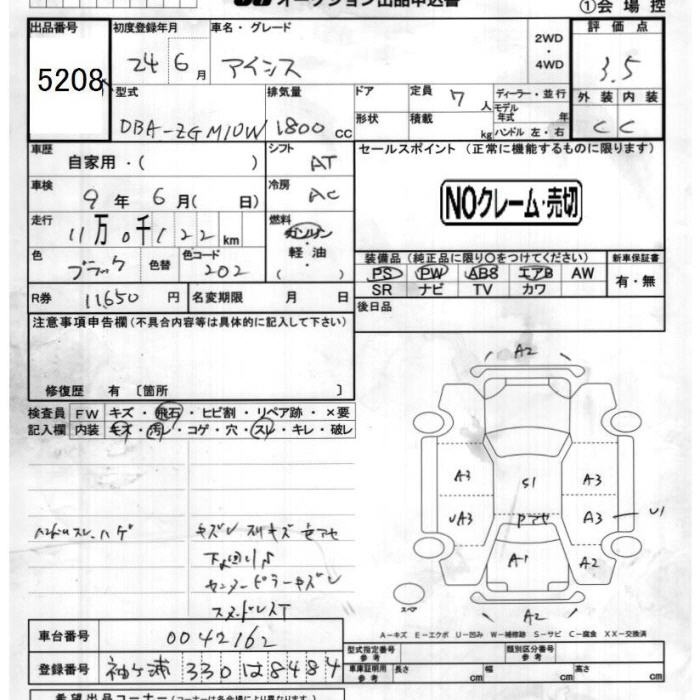 オークション出品申込書
①会場控
出品番号 初度登録年月 車名・グレード 評価点
5208 24年 6月 アイシス 2WD・4WD 3.5
型式 排気量 ドア 定員 7人 ディーラー・並行 外装 内装
DBA-ZGM10W 1800cc 形状 積載 kg モデル年式 年 ハンドル 左・右 C C
車歴 自家用・( ) シフト AT セールスポイント (正常に機能するものに限ります)
車検 9年 6月( 日) 冷房 AC NOクレーム・売切
走行 11万0千122km 燃料 ガソリン・軽油・( )
色 ブラック 色替 色コード 202 装備品 (純正品に限り○をつけてください) 新車保証書
PS PW ABS エアB AW 有・無
SR ナビ TV カワ
R券 11,650円 名変期限 月 日 後日品
注意事項申告欄(不具合内容等は具体的に記入して下さい)
修復歴 有 〔箇所 〕
検査員記入欄 FW キズ・飛石・ヒビ割・リペア跡・×要
内装 キズ・汚レ・コゲ・穴・スレ・キレ・破レ
A2
A3 S1 A3
UA3 Pアセ A3 U1
A1 A2
スペア A2
ハンドルスレ、ハゲ キズレ スリキズ 色アセ
下廻り
センターピラーキズレ
A-キズ E-エクボ U-凹み W-補修跡 S-サビ C-腐食 XX-交換済
車台番号 0042162
型式指定番号 参考 類別区分番号 参考
登録番号 袖ケ浦 330 は 8484
車庫証明用 参考 長さ cm 幅 cm 高さ cm
希望出品コーナー(コーナーは各会場により異なります)